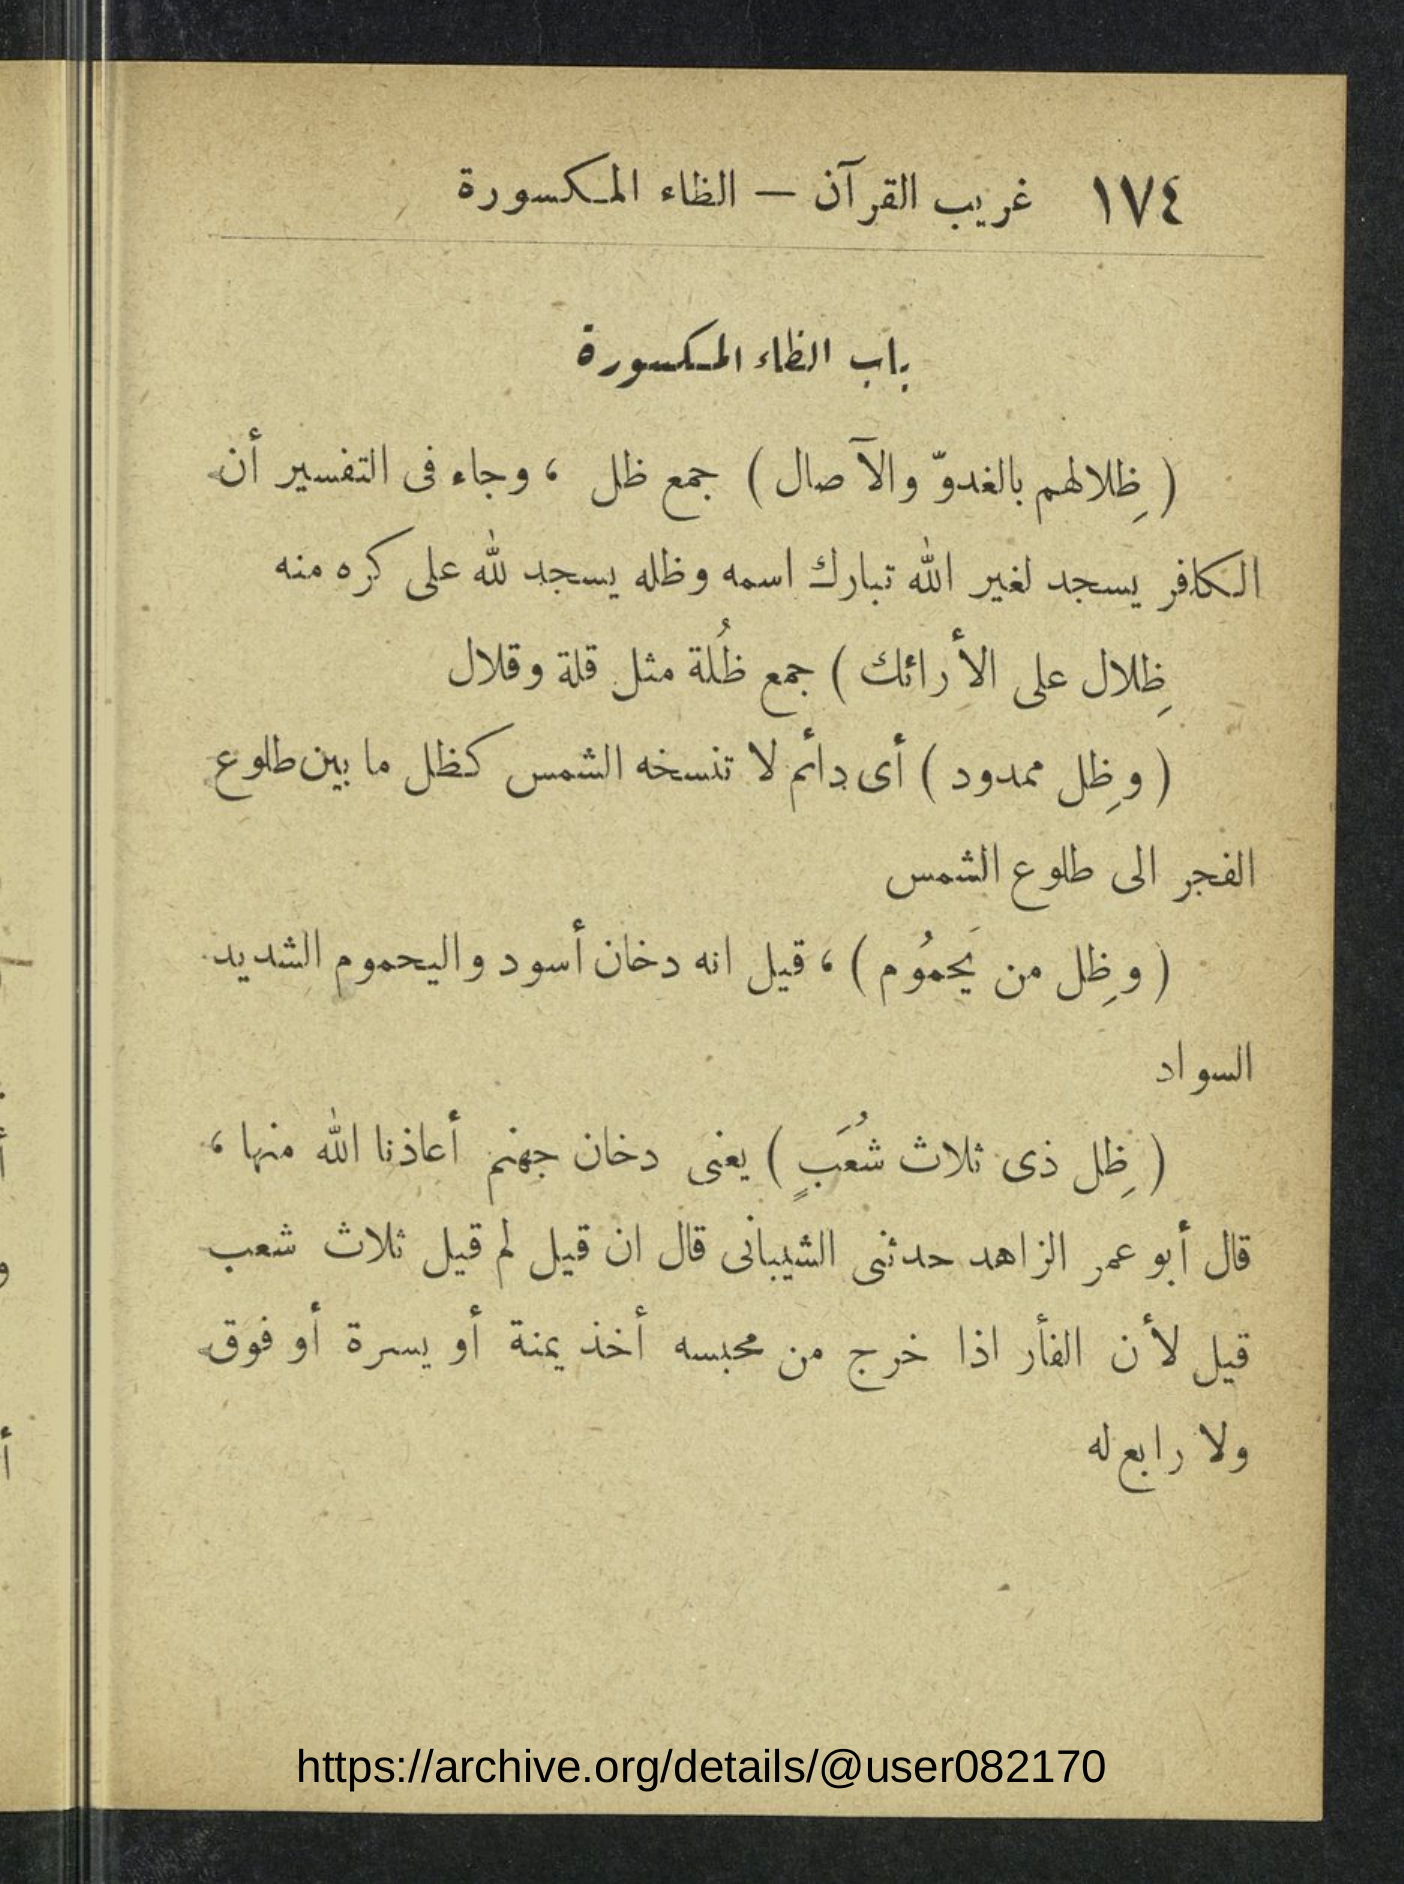 ١٧٤ غريب القرآن — الظاء المكسورة
باب الظاء المكسورة
( ظِلالهم بالغدوّ والآصال ) جمع ظل ، وجاء فى التفسير أن
الكافر يسجد لغير الله تبارك اسمه وظله يسجد لله على كره منه
ظِلال على الأرائك ) جمع ظُلة مثل قلة وقلال
( وظِل ممدود ) أى دائم لا تنسخه الشمس كظل ما بين طلوع
الفجر الى طلوع الشمس
( وظِل من يَحمُوم ) ، قيل انه دخان أسود واليحموم الشديد
السواد
( ظِل ذى ثلاث شُعَبٍ ) يعنى دخان جهنم أعاذنا الله منها ،
قال أبو عمر الزاهد حدثنى الشيبانى قال ان قيل لم قيل ثلاث شعب
قيل لأن الفأر اذا خرج من محبسه أخذ يمنة أو يسرة أو فوق
ولا رابع له
https://archive.org/details/@user082170